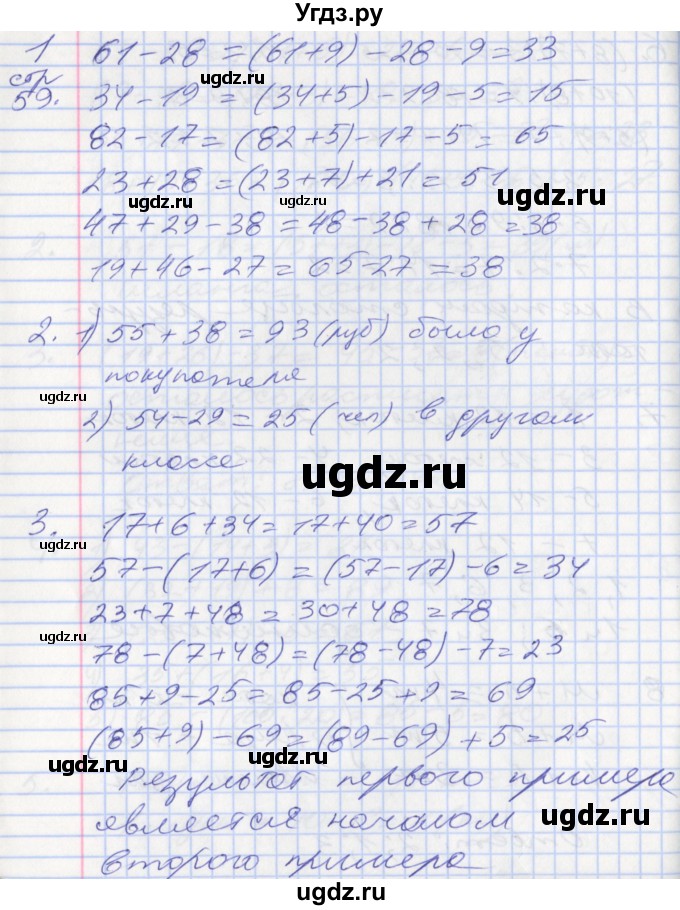 Угдз.ру
1 61-28 = (61+9) - 28 - 9 = 33
стр 59. 34 - 19 = (34+5) - 19 - 5 = 15
82 - 17 = (82+5) - 17 - 5 = 65
23 + 28 = (23+7) + 21 = 51
47 + 29 - 38 = 48 - 38 + 28 = 38
19 + 46 - 27 = 65 - 27 = 38
2. 1) 55 + 38 = 93 (руб) было у
покупателя
2) 54 - 29 = 25 (чел) в другом
классе
3. 17 + 6 + 34 = 17 + 40 = 57
57 - (17+6) = (57-17) - 6 = 34
23 + 7 + 48 = 30 + 48 = 78
78 - (7+48) = (78-48) - 7 = 23
85 + 9 - 25 = 85 - 25 + 9 = 69
(85+9) - 69 = (89-69) + 5 = 25
Результат первого примера
является началом
второго примера
ugdz.ru
ugdz.ru
ugdz.ru
ugdz.ru
ugdz.ru
ugdz.ru
ugdz.ru
ugdz.ru
ugdz.ru
ugdz.ru
ugdz.ru
ugdz.ru
ugdz.ru